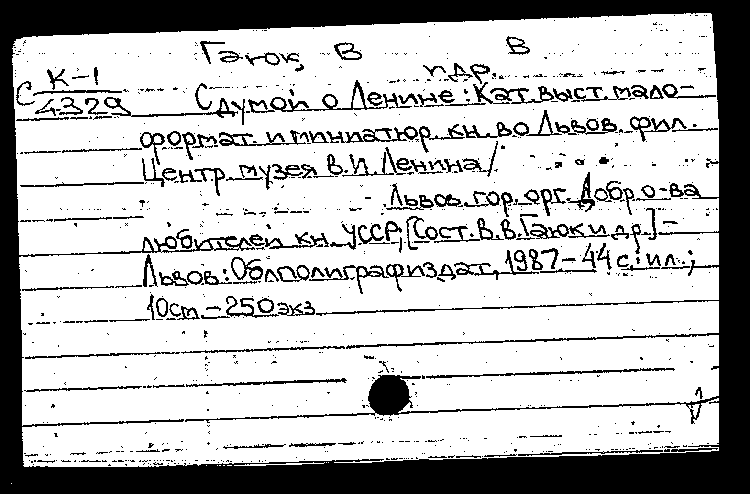 Гаюк, В В
и др.
С К-1
4329
С думой о Ленине: Кат. выст. мало-
формат. и миниатюр. кн. во Львов. фил.
Центр. музея В.И. Ленина/
Львов. гор. орг. Добр. о-ва
любителей кн. УССР; [Сост. В.В. Гаюк и др.] –
Львов: Облполиграфиздат, 1987 – 44 с.: ил.;
10 см – 250 экз